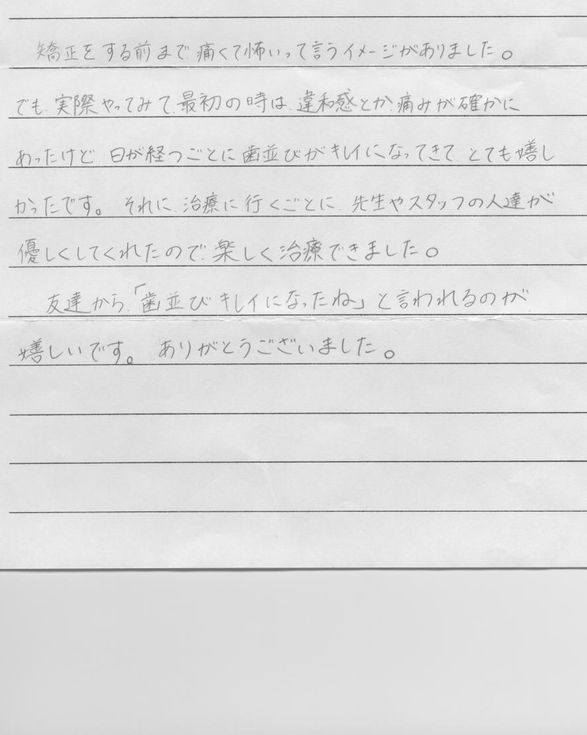 矯正をする前まで痛くて怖いって言うイメージがありました。
でも、実際やってみて、最初の時は、違和感とか、痛みが確かに
あったけど、日が経つごとに歯並びがキレイになってきて、とても嬉し
かったです。それに、治療に行くごとに、先生やスタッフの人達が
優しくしてくれたので、楽しく治療できました。
友達から、「歯並びキレイになったね」と言われるのが、
嬉しいです。ありがとうございました。